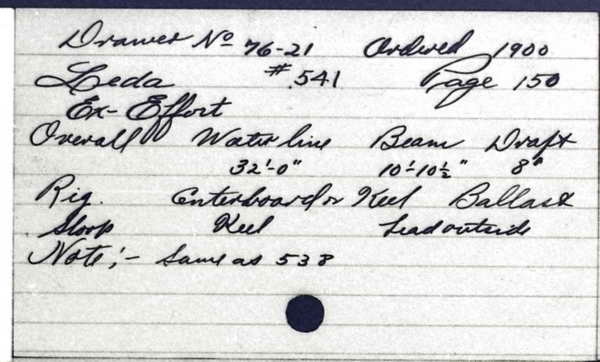 Drawer No 76-21 Ordered 1900
Leda #541 Page 150
Ex-Effort
Overall Water line Beam Draft
32'-0" 10'-10½" 8"
Rig. Centerboard or Keel Ballast
Sloop Keel Lead outside
Note:- Same as 538